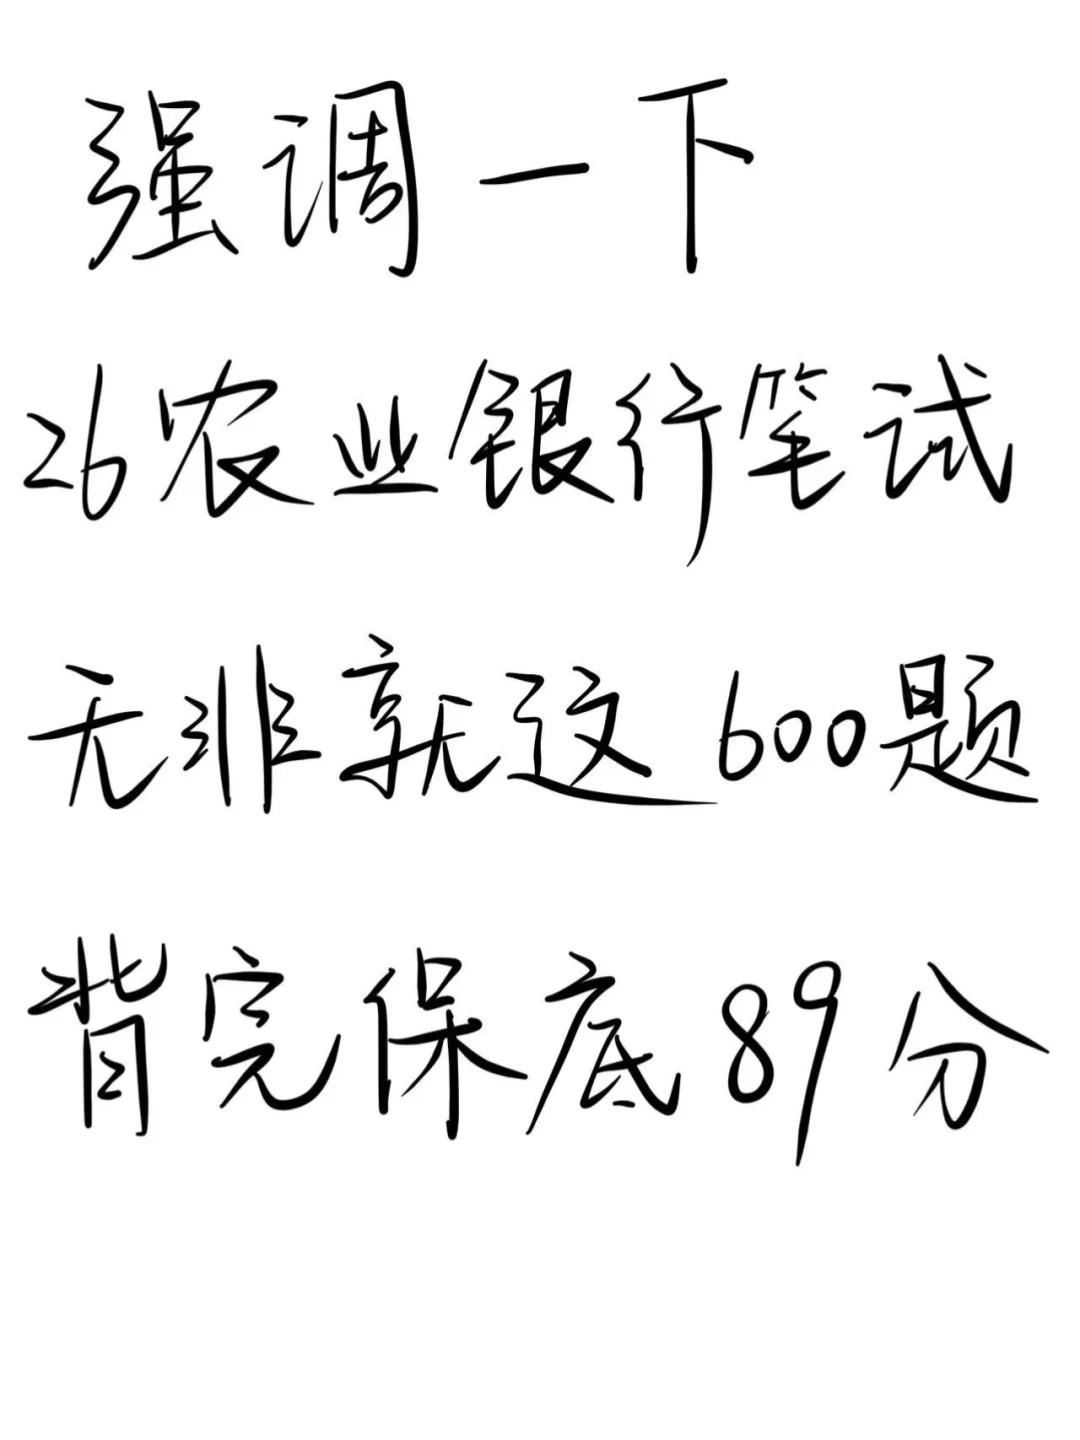 强调一下
26农业银行笔试
无非就这600题
背完保底89分